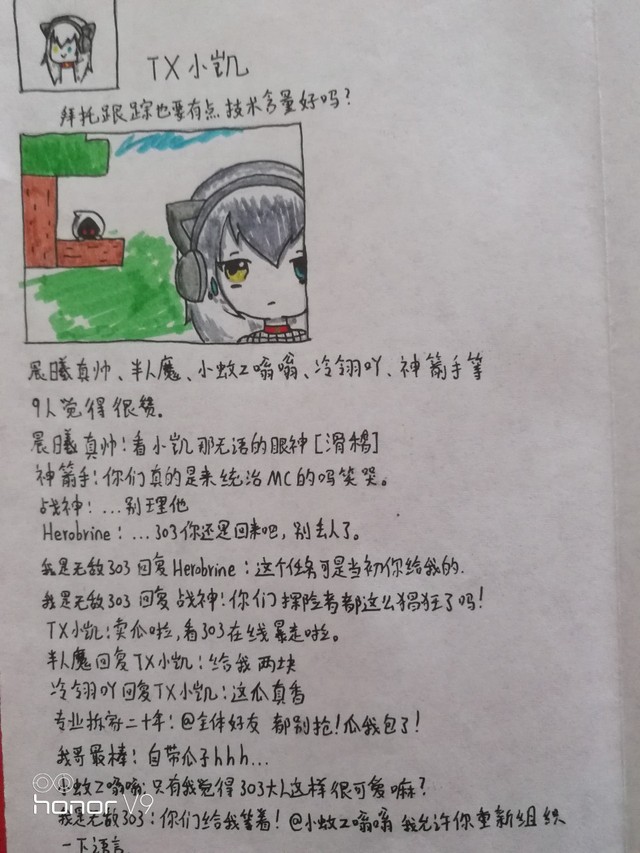 TX小凯
拜托跟踪也要有点技术含量好吗?
晨曦真帅、半人魔、小蚊工嗡嗡、冷翎吖、神箭手等
9人觉得很赞。
晨曦真帅:看小凯那无语的眼神[滑稽]
神箭手:你们真的是来统治MC的吗笑哭。
战神:...别理他
Herobrine:...303你还是回来吧,别丢人了。
我是无敌303回复Herobrine:这个任务可是当初你给我的.
我是无敌303回复战神:你们探险者都这么猖狂了吗!
TX小凯:卖瓜啦,看303在线暴走啦。
半人魔回复TX小凯:给我两块
冷翎吖回复TX小凯:这瓜真香
专业拆家二十年:@全体好友 都别抢!瓜我包了!
我哥最棒:自带瓜子hhh...
小蚊工嗡嗡:只有我觉得303大人这样很可爱嘛?
我是无敌303:你们给我等着!@小蚊工嗡嗡 我允许你重新组织
一下语言
honor V9